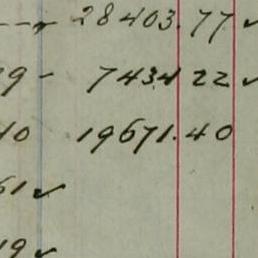 28403.77 ✓
29 - 7434 22 ✓
40 19671.40
61 ✓
19 ✓